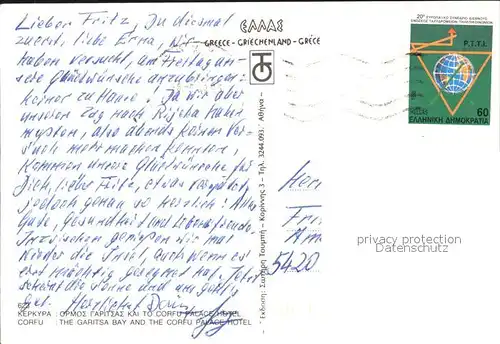 Lieber Fritz, Du diesmal
zuerst, liebe Erna, Wir
haben versucht, am Freitag un-
sere Glückwünsche anzubringen:
keiner zu Hause. Da wir aber
unseren Zug nach Rijeka haben
mussten, also abends keinen Ver-
such mehr machen konnten,
kommen unsere Glückwünsche für
Dich, lieber Fritz, etwas verspätet,
jedoch genau so herzlich: Alles
Gute, Gesundheit und Lebensfreude.
Inzwischen genießen wir mal
wieder die Insel, auch wenn es
erst mächtig geregnet hat. Jetzt
scheint die Sonne und am
Herzlichst
622
ΚΕΡΚΥΡΑ : ΟΡΜΟΣ ΓΑΡΙΤΣΑΣ ΚΑΙ ΤΟ CORFU PALACE HOTEL
CORFU : THE GARITSA BAY AND THE CORFU PALACE HOTEL
ΕΛΛΑΣ
GREECE - GRIECHENLAND - GRÈCE
Έκδοσις: Σωτήρη Τουμπή - Κορίννης 3 - Τηλ. 3244.093. Αθήνα
20ο ΕΥΡΩΠΑΪΚΟ ΣΥΝΕΔΡΙΟ ΔΙΕΘΝΟΥΣ
P.T.T.I.
ΕΛΛΑΣ 60
ΕΛΛΗΝΙΚΗ ΔΗΜΟΚΡΑΤΙΑ
Her
Fri
Am
5420
privacy protection
Datenschutz